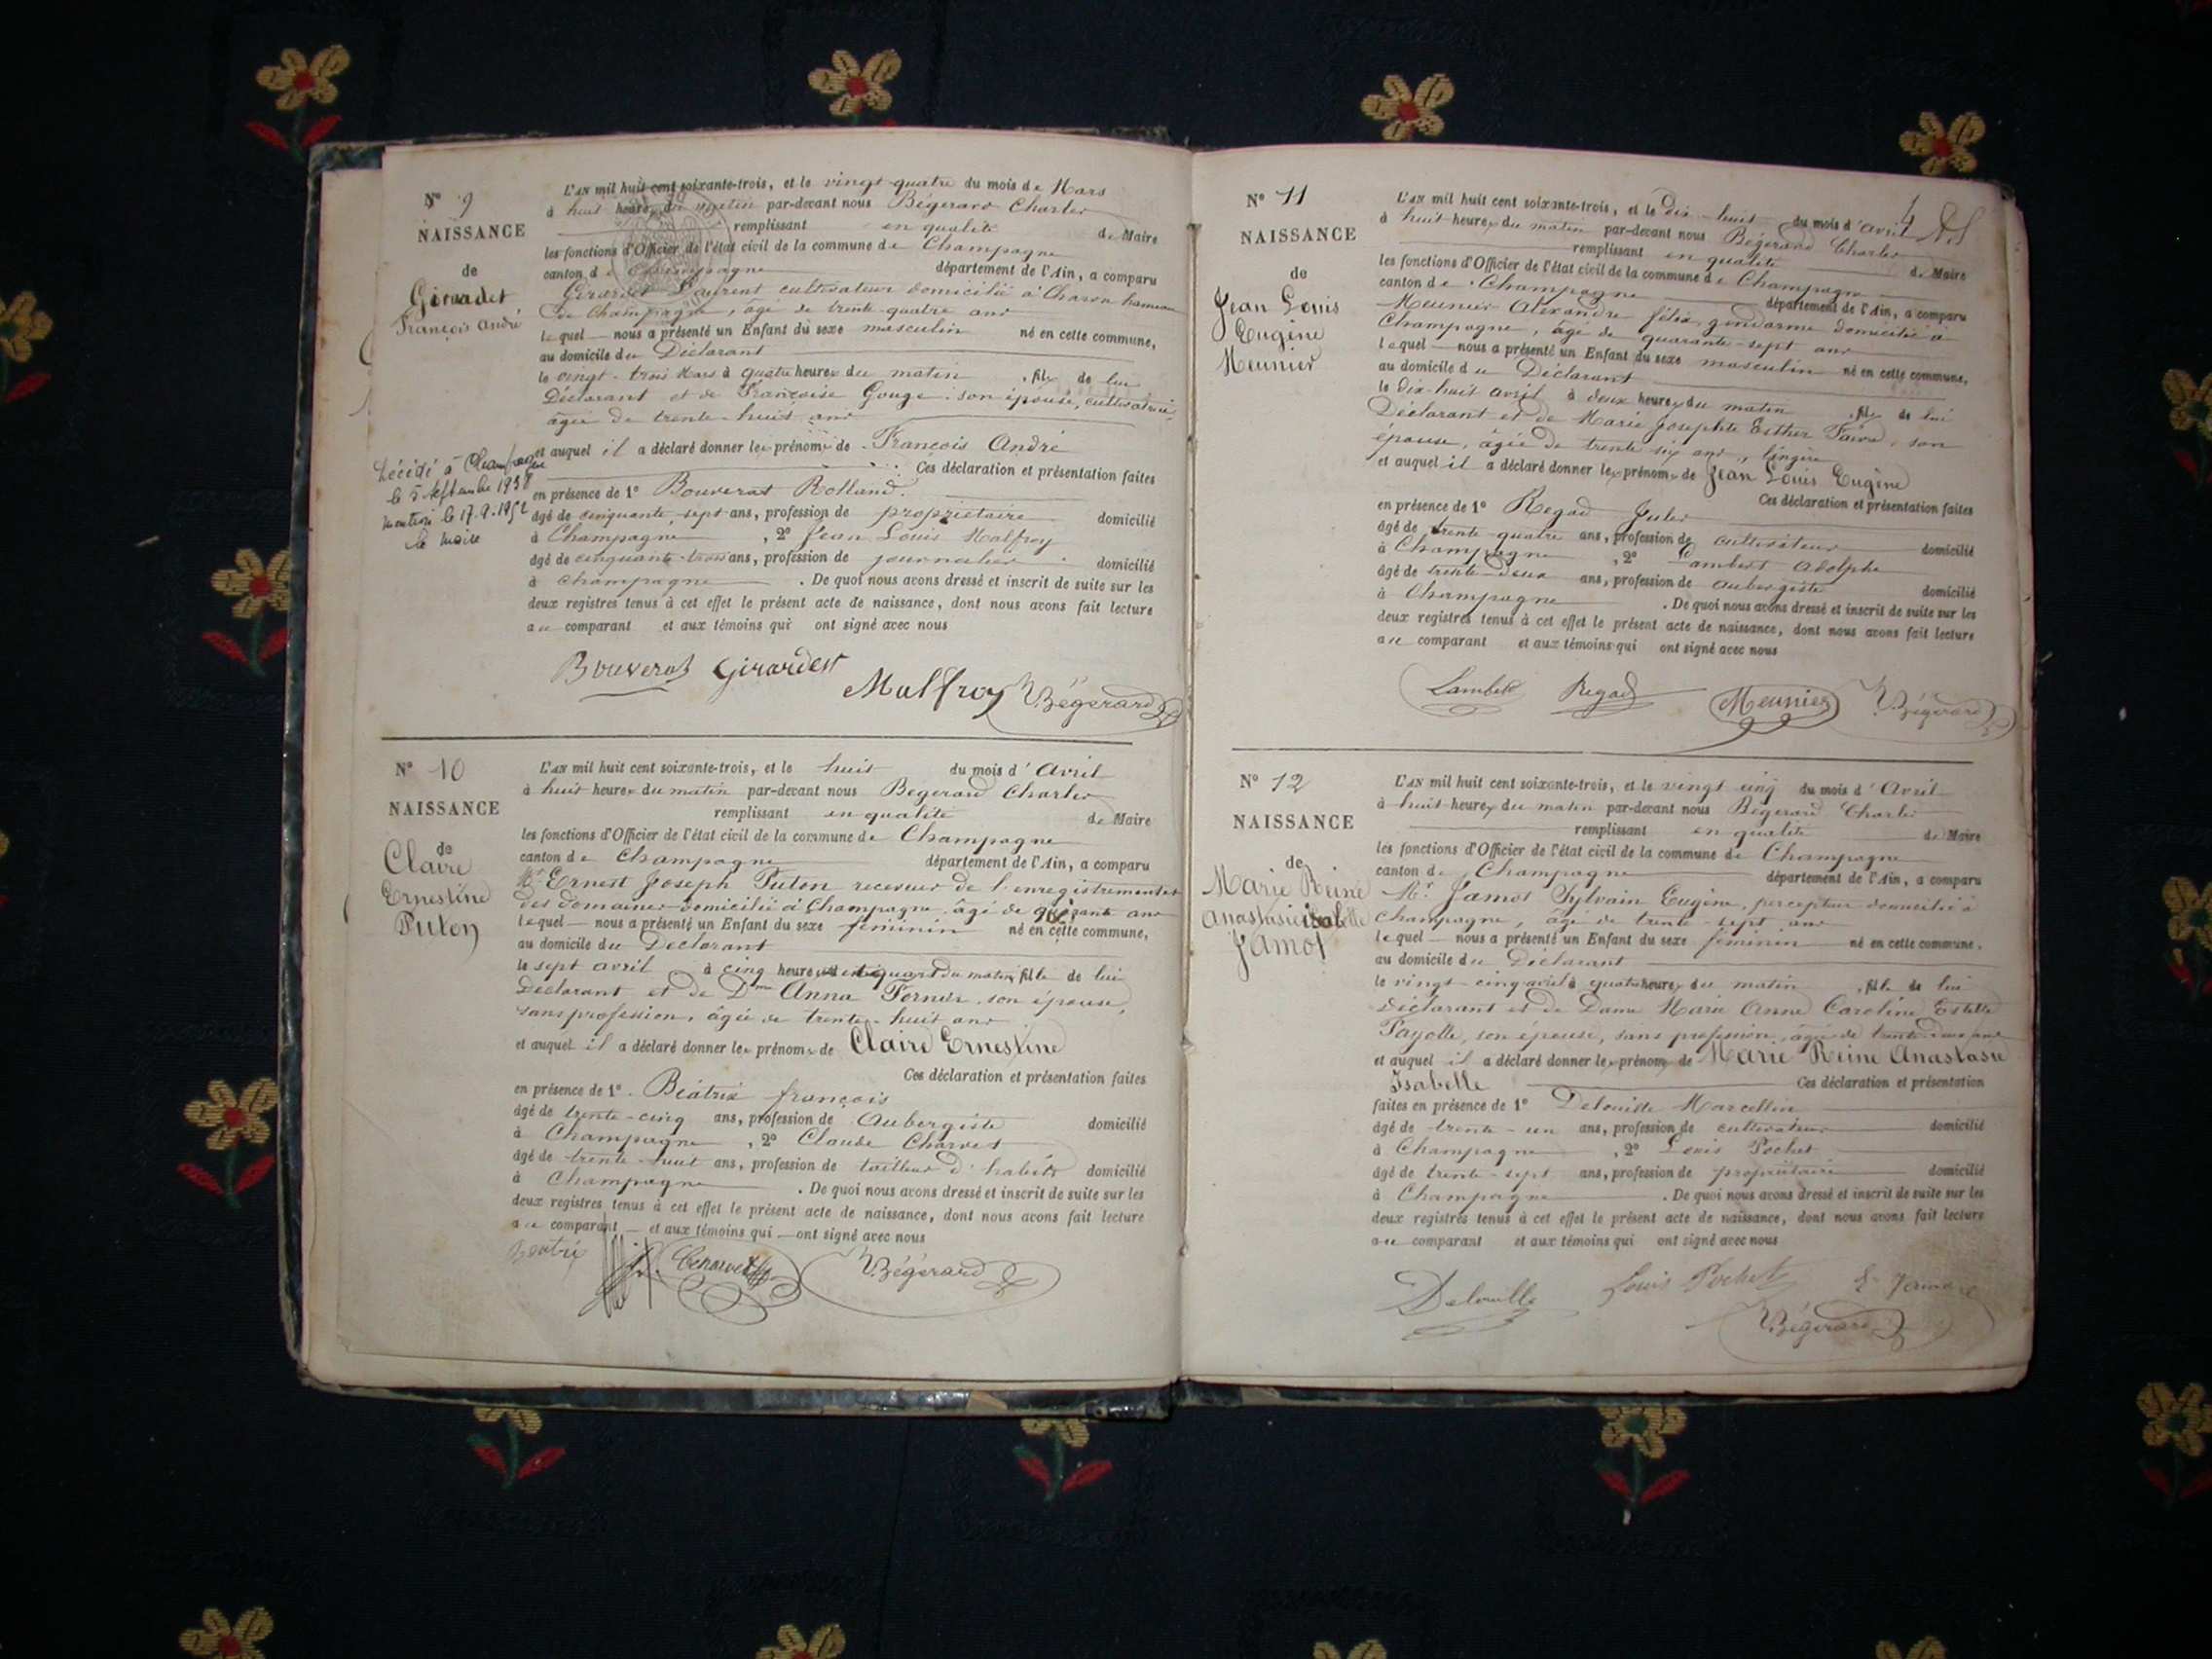 N° 9
NAISSANCE
de
Girardet
François André
L'AN mil huit cent soixante-trois, et le vingt-quatre du mois de Mars
à huit heures du matin par-devant nous Bégerard Charles
remplissant en qualité de Maire
les fonctions d'Officier de l'état civil de la commune de Champagne
canton de Champagne département de l'Ain, a comparu
Girardet Laurent cultivateur domicilié à Charon hameau
de Champagne, âgé de trente quatre ans
lequel nous a présenté un Enfant du sexe masculin né en cette commune,
au domicile du Déclarant
le vingt-trois Mars à quatre heures du matin, fils de lui
Déclarant et de Françoise Gouge son épouse, cultivatrice,
âgée de trente-huit ans
et auquel il a déclaré donner les prénoms de François André
Ces déclaration et présentation faites
Décédé à Champagne
le 5 Septembre 1938
Mention le 17.9.1952
le Maire
en présence de 1° Bouverat Rolland
âgé de cinquante sept ans, profession de propriétaire domicilié
à Champagne, 2° Jean Louis Malfroy
âgé de cinquante-trois ans, profession de journalier domicilié
à Champagne. De quoi nous avons dressé et inscrit de suite sur les
deux registres tenus à cet effet le présent acte de naissance, dont nous avons fait lecture
au comparant et aux témoins qui ont signé avec nous
Bouverat Girardet Malfroy Bégerard
N° 10
NAISSANCE
de
Claire
Ernestine
Puton
L'AN mil huit cent soixante-trois, et le huit du mois d'Avril
à huit heures du matin par-devant nous Bégerard Charles
remplissant en qualité de Maire
les fonctions d'Officier de l'état civil de la commune de Champagne
canton de Champagne département de l'Ain, a comparu
Mr Ernest Joseph Puton receveur de l'enregistrement et
des domaines domicilié à Champagne, âgé de ans
lequel nous a présenté un Enfant du sexe féminin né en cette commune,
au domicile du Déclarant
le sept avril à cinq heures quart du matin, fille de lui
Déclarant et de Dme Anna Fernier, son épouse,
sans profession, âgée de trente-huit ans
et auquel il a déclaré donner les prénoms de Claire Ernestine
Ces déclaration et présentation faites
en présence de 1° Béatrix françois
âgé de trente-cinq ans, profession de Aubergiste domicilié
à Champagne, 2° Claude Charvet
âgé de trente-huit ans, profession de tailleur d'habits domicilié
à Champagne. De quoi nous avons dressé et inscrit de suite sur les
deux registres tenus à cet effet le présent acte de naissance, dont nous avons fait lecture
au comparant et aux témoins qui ont signé avec nous
Charvet Bégerard
N° 11
NAISSANCE
de
Jean Louis
Eugène
Meunier
4
L'AN mil huit cent soixante-trois, et le dix-huit du mois d'Avril
à huit heures du matin par-devant nous Bégerard Charles
remplissant en qualité de Maire
les fonctions d'Officier de l'état civil de la commune de Champagne
canton de Champagne département de l'Ain, a comparu
Meunier Alexandre félix, gendarme domicilié à
Champagne, âgé de quarante-sept ans
lequel nous a présenté un Enfant du sexe masculin né en cette commune,
au domicile du Déclarant
le dix-huit avril à deux heures du matin, fils de lui
Déclarant et de Marie Josephte Esther Faivre, son
épouse, âgée de trente six ans, lingère
et auquel il a déclaré donner les prénoms de Jean Louis Eugène
Ces déclaration et présentation faites
en présence de 1° Regad Jules
âgé de trente-quatre ans, profession de cultivateur domicilié
à Champagne, 2° Lambert Adolphe
âgé de trente-deux ans, profession de aubergiste domicilié
à Champagne. De quoi nous avons dressé et inscrit de suite sur les
deux registres tenus à cet effet le présent acte de naissance, dont nous avons fait lecture
au comparant et aux témoins qui ont signé avec nous
Lambert Regad Meunier Bégerard
N° 12
NAISSANCE
de
Marie Reine
Anastasie isabelle
Jamot
L'AN mil huit cent soixante-trois, et le vingt cinq du mois d'Avril
à huit heures du matin par-devant nous Bégerard Charles
remplissant en qualité de Maire
les fonctions d'Officier de l'état civil de la commune de Champagne
canton de Champagne département de l'Ain, a comparu
Mr Jamot Sylvain Eugène, percepteur domicilié à
Champagne, âgé de trente-sept ans
lequel nous a présenté un Enfant du sexe féminin né en cette commune,
au domicile du Déclarant
le vingt-cinq avril à quatre heures du matin, fille de lui
Déclarant et de Dame Marie Anne Caroline Estelle
Payolle, son épouse, sans profession, âgée de trente deux ans
et auquel il a déclaré donner les prénoms de Marie Reine Anastasie
Isabelle Ces déclaration et présentation
faites en présence de 1° Delouille Marcellin
âgé de trente-un ans, profession de cultivateur domicilié
à Champagne, 2° Louis Pochet
âgé de trente-sept ans, profession de propriétaire domicilié
à Champagne. De quoi nous avons dressé et inscrit de suite sur les
deux registres tenus à cet effet le présent acte de naissance, dont nous avons fait lecture
au comparant et aux témoins qui ont signé avec nous
Delouille Louis Pochet
Bégerard